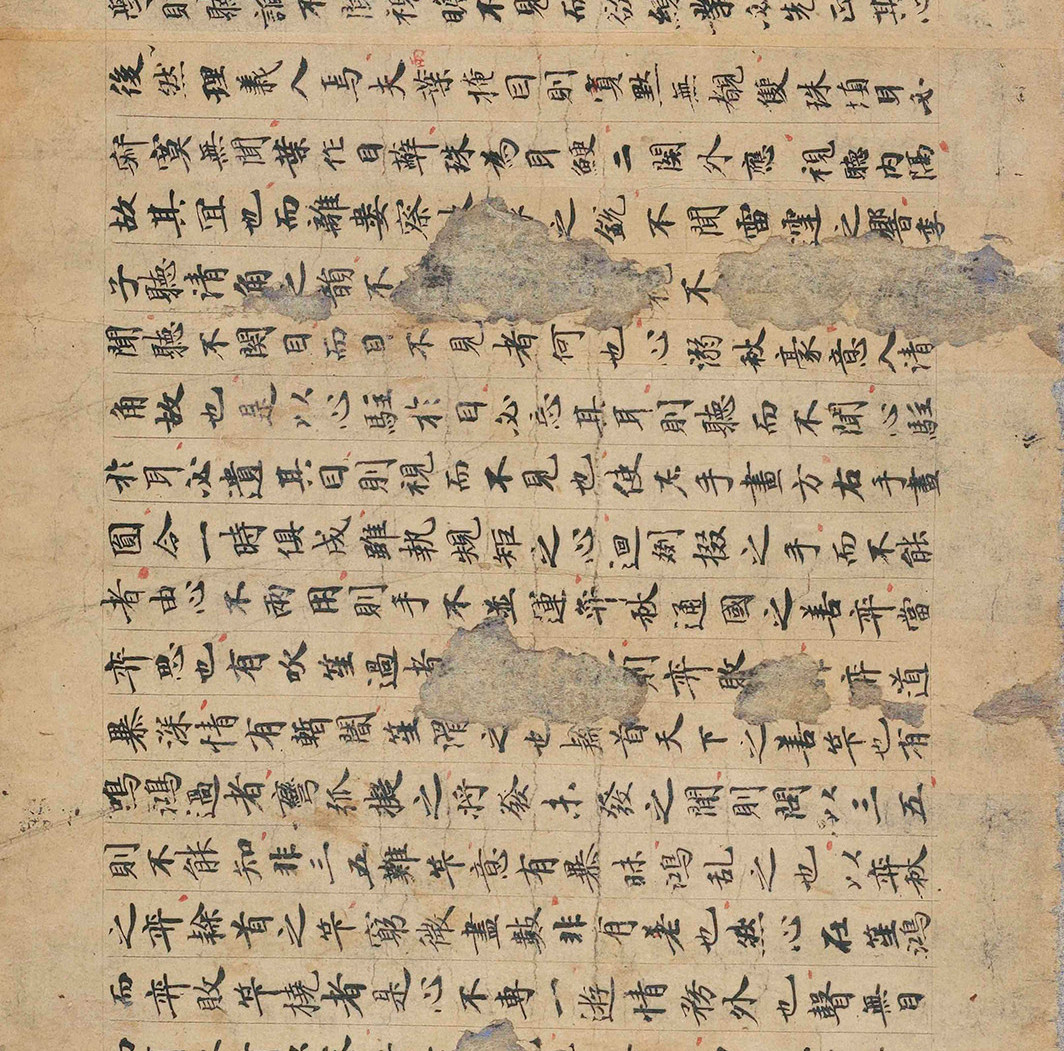 後然理義入焉夫兩葉掩目則冥默無覩雙珠填耳必
寂寞無聞葉作目蔽珠為耳鯁二關外壅視聽內隔
故其宜也而離婁察之銳不聞雷霆之響季
子聽清角之韻不不
聞聽不關目而目不見者何也心溺秋豪意入清
角故也是以心駐於目必忘其耳則聽而不聞心駐
於耳必遺其目則視而不見也使左手畫方右手畫
圓令一時俱成雖執規矩之心迴剟掇之手而不能
者由心不兩用則手不並運弈秋通國之善弈當
弈思也有吹笙過者則弈敗弈道
暴深情有暫闇笙滑之也隸首天下之善筭也有
鳴鴻過者彎弧擬之將發未發之間則問以三五
則不能知非三五難筭意有暴昧鴻乱之也以弈秋
之弈隸首之筭窮微盡數非有差也然心在笙鴻
而弈敗筭撓者是心不專一遊情務外也瞽無目